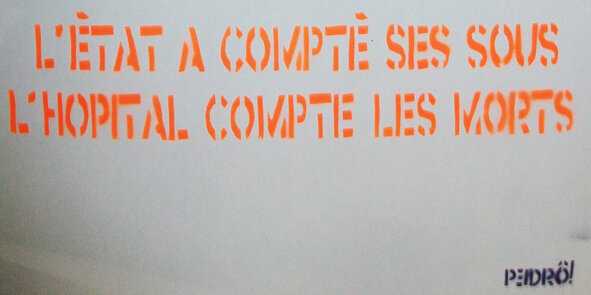 L'ÉTAT A COMPTÉ SES SOUS
L'HOPITAL COMPTE LES MORTS
PEIDRÔ!